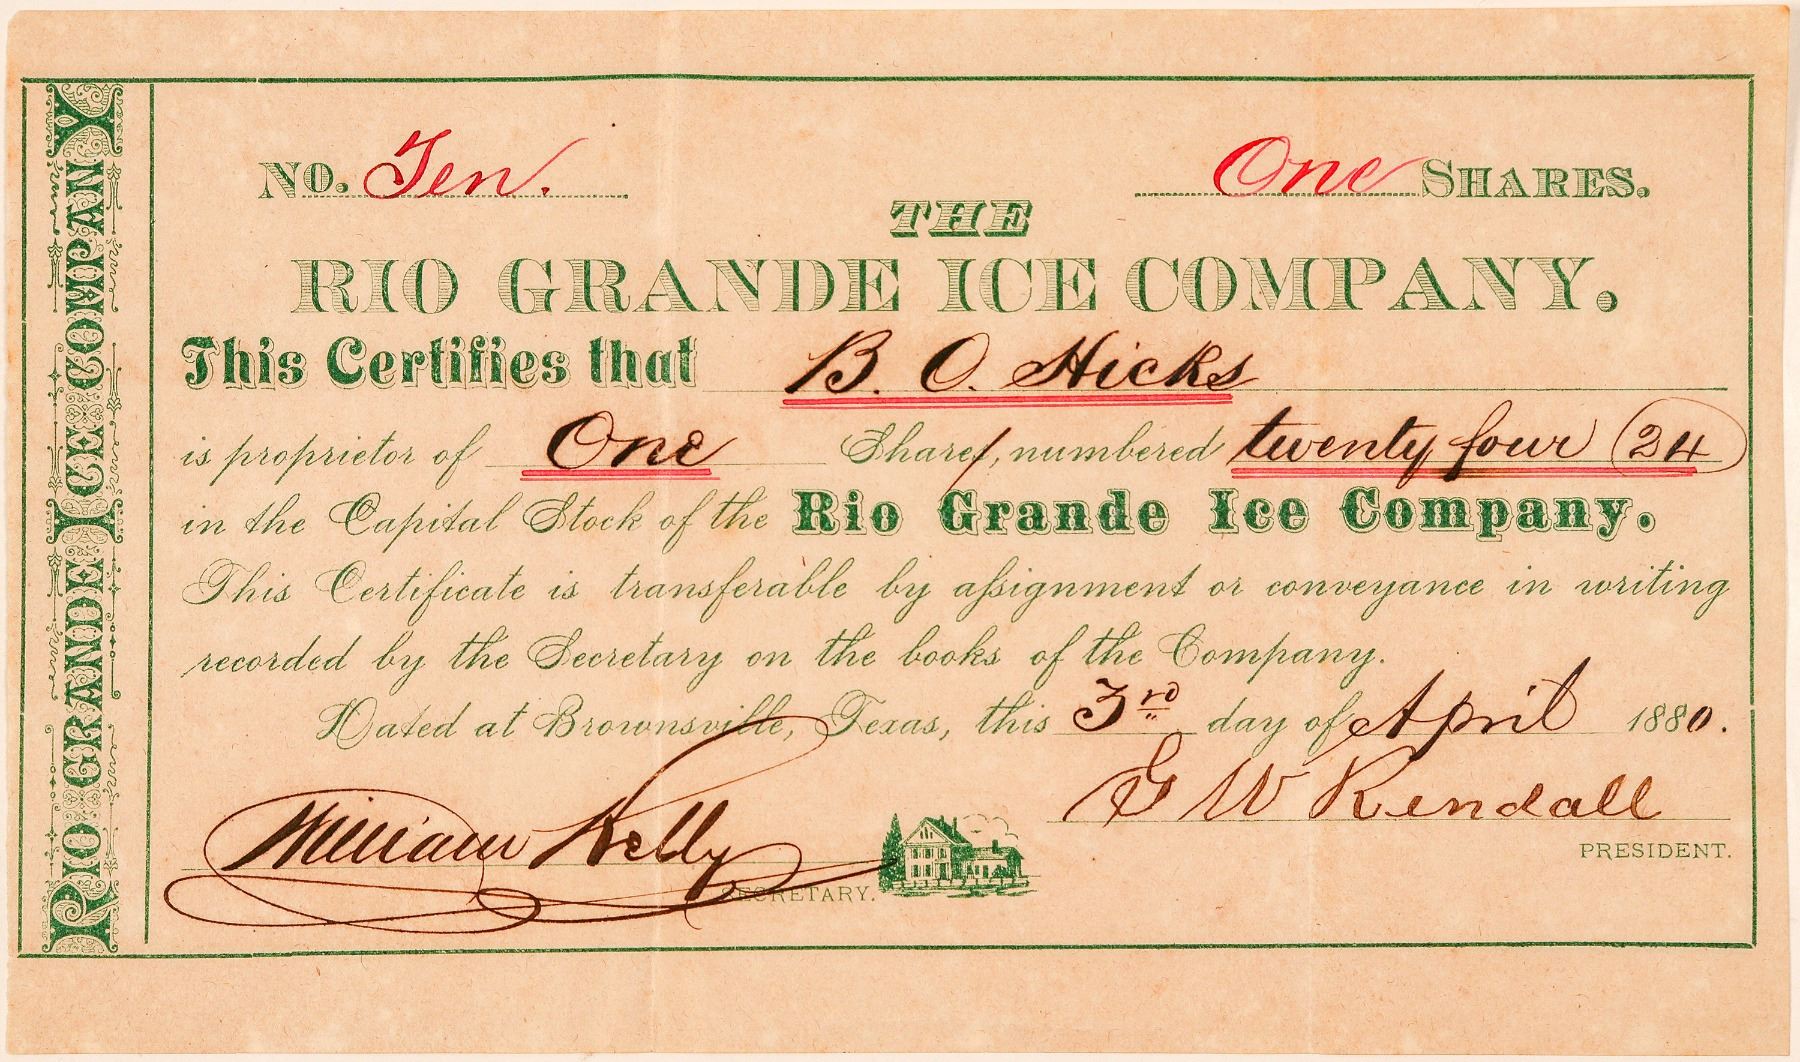 RIO GRANDE ICE COMPANY
NO. Ten. One SHARES.
THE
RIO GRANDE ICE COMPANY.
This Certifies that B. O. Hicks
is proprietor of One Shares, numbered twenty four (24)
in the Capital Stock of the Rio Grande Ice Company.
This Certificate is transferable by aſsignment or conveyance in writing
recorded by the Secretary on the books of the Company.
Dated at Brownsville, Texas, this 3rd day of April 1880.
G W Kendall
PRESIDENT.
William Kelly
SECRETARY.